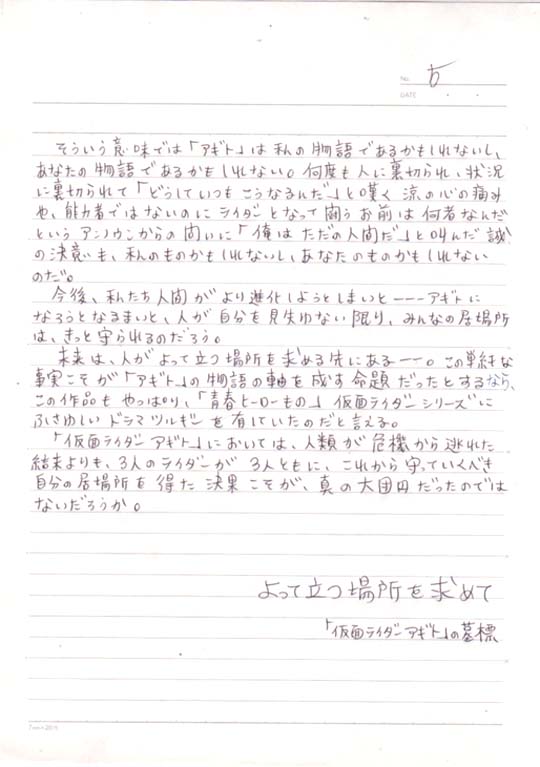 No. 5
DATE
そういう意味では「アギト」は私の物語であるかもしれないし、
あなたの物語であるかもしれない。何度も人に裏切られ、状況
に裏切られて「どうしていつもこうなるんだ」と嘆く涼の心の痛み
や、能力者ではないのにライダーとなって闘うお前は何者なんだ
というアンノウンからの問いに「俺はただの人間だ」と叫んだ誠
の決意も、私のものかもしれないし、あなたのものかもしれない
のだ。
今後、私たち人間がより進化しようとしまいと―――アギトに
なろうとなるまいと、人が自分を見失わない限り、みんなの居場所
は、きっと守られるのだろう。
未来は、人がよって立つ場所を求める先にある――。この単純な
事実こそが「アギト」の物語の軸を成す命題だったとするなら、
この作品もやっぱり、「青春ヒーローもの」仮面ライダーシリーズに
ふさわしいドラマツルギーを有していたのだと言える。
「仮面ライダーアギト」においては、人類が危機から逃れた
結末よりも、3人のライダーが3人ともに、これから守っていくべき
自分の居場所を得た決果こそが、真の大団円だったのでは
ないだろうか。
よって立つ場所を求めて
「仮面ライダーアギト」の墓標